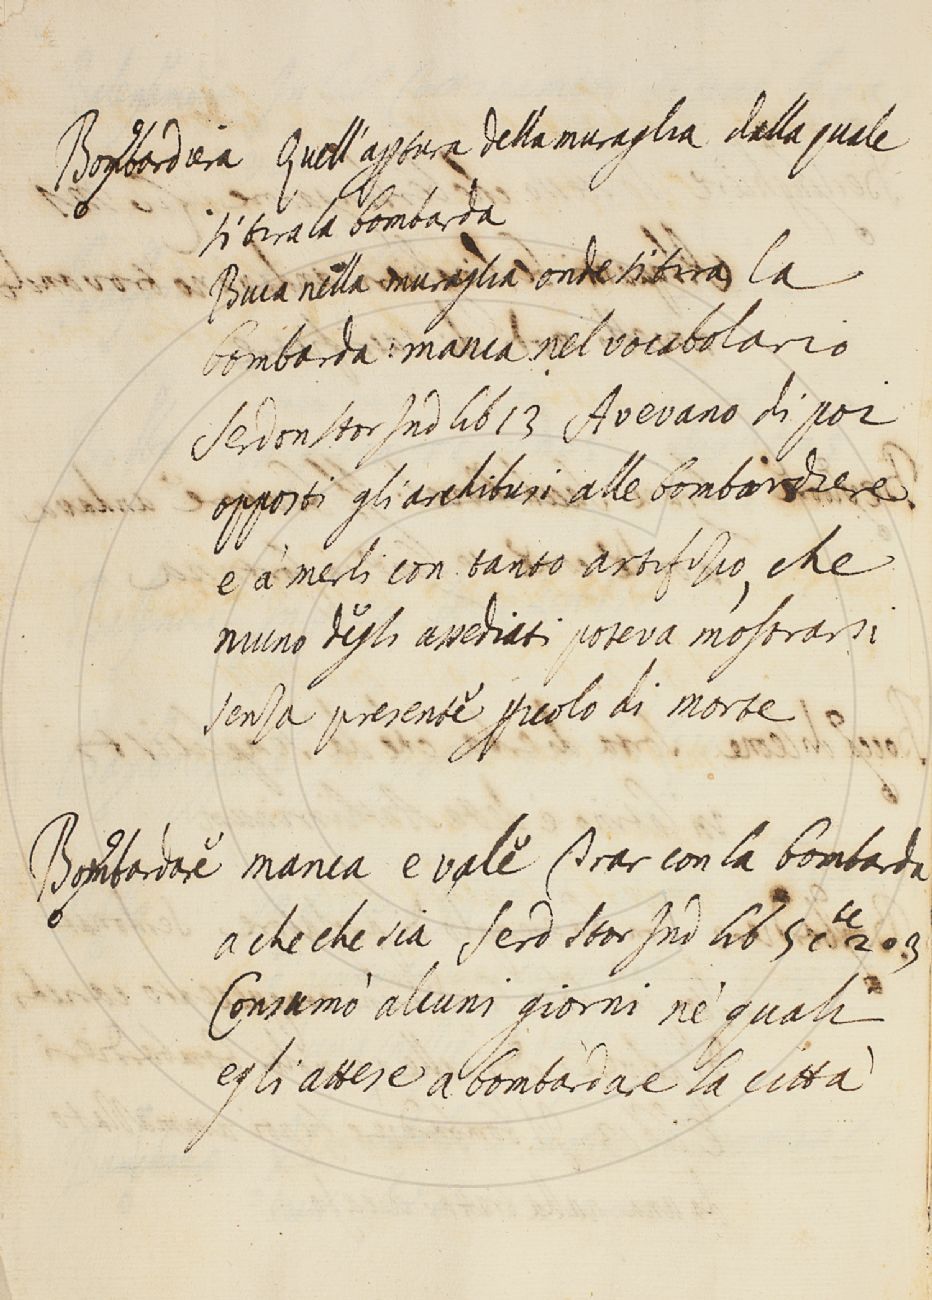 Bombardiera Quell'apertura della muraglia dalla quale
si tira la bombarda
Buca nella muraglia onde si tira la
bombarda: manca nel vocabolario
Serdon Stor Ind lib 13 Avevano di poi
opposti gli archibusi alle bombardiere.
e a' merli con tanto artifizio, che
niuno degli assediati poteva mostrarsi
senza presente pericolo di morte
Bombardare manca e vale Tirar con la bombarda
a che che sia Serd Stor Ind lib 5 cte 203
Consumò alcuni giorni ne' quali
egli attese a bombardare la città